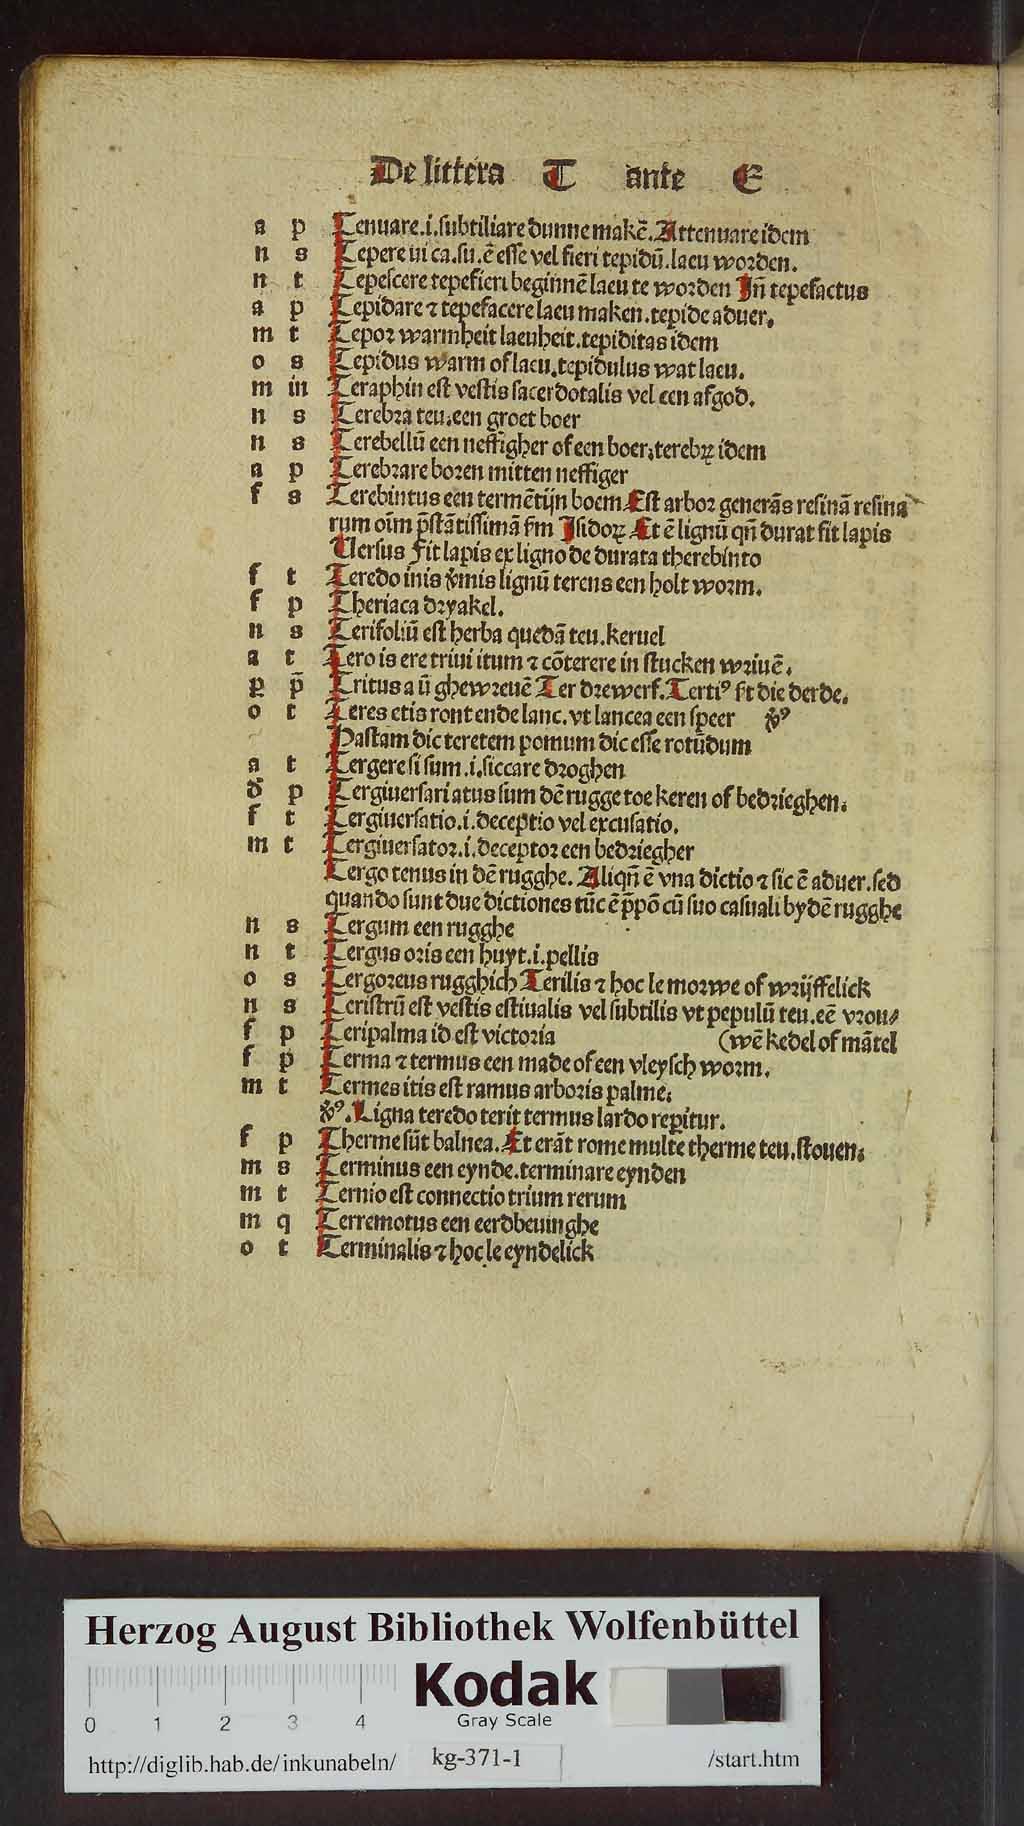 De littera T ante E
a p Tenuare.i.subtiliare dunne makē. Attenuare idem
n s Tepere ui ca.su.ē esse vel fieri tepidū.laeu worden.
n t Tepescere tepefieri beginnē laeu te worden Iñ tepefactus
a p Tepidare ⁊ tepefacere laeu maken.tepide aduer.
m t Tepor warmheit laeuheit.tepiditas idem
o s Tepidus warm of laeu.tepidulus wat laeu.
m in Teraphin est vestis sacerdotalis vel een afgod.
n s Terebra teu.een groet boer
n s Terebellū een neffigher of een boer.terebꝝ idem
a p Terebrare boren mitten neffiger
f s Terebintus een termētijn boem Est arbor generās resinā resina
rum oīm p̄stātissimā fm Isidoꝝ Et ē lignū qñ durat fit lapis
Uersus Fit lapis ex ligno de durata therebinto
f t Teredo inis v̄mis lignū terens een holt worm.
f p Theriaca dryakel.
n s Terifoliū est herba quedā teu.keruel
a t Tero is ere triui itum ⁊ cōterere in stucken wriuē.
ꝑ p̄ Tritus a ū ghewreuē Ter drewerf. Tertiꝰ ft die derde.
o t Teres etis ront ende lanc.vt lancea een speer v̄ꝰ
Hastam dic teretem pomum dic esse rotūdum
a t Tergere si sum.i.siccare droghen
đ p Tergiuersari atus sum dē rugge toe keren of bedrieghen.
f t Tergiuersatio.i.deceptio vel excusatio.
m t Tergiuersator.i.deceptor een bedriegher
Tergo tenus in dē rugghe. Aliqñ ē vna dictio ⁊ sic ē aduer.sed
quando sunt due dictiones tūc ē p̄pō cū suo casuali by dē rugghe
n s Tergum een rugghe
n t Tergus oris een huyt.i.pellis
o s Tergoreus rugghich Terilis ⁊ hoc le morwe of wrijffelick
n s Teristrū est vestis estiualis vel subtilis vt pepulū teu.eē vrou⸗
f p Teripalma id est victoria (wē kedel of mātel
f p Terma ⁊ termus een made of een vleysch worm.
m t Termes itis est ramus arboris palme.
v̄ꝰ. Ligna teredo terit termus lardo reperitur.
f p Therme sūt balnea. Et erāt rome multe therme teu.stouen.
m s Terminus een eynde.terminare eynden
m t Ternio est connectio trium rerum
m q Terremotus een eerdbeuinghe
o t Terminalis ⁊ hoc le eyndelick
Herzog August Bibliothek Wolfenbüttel
Kodak
Gray Scale
0 1 2 3 4
http://diglib.hab.de/inkunabeln/ kg-371-1 /start.htm